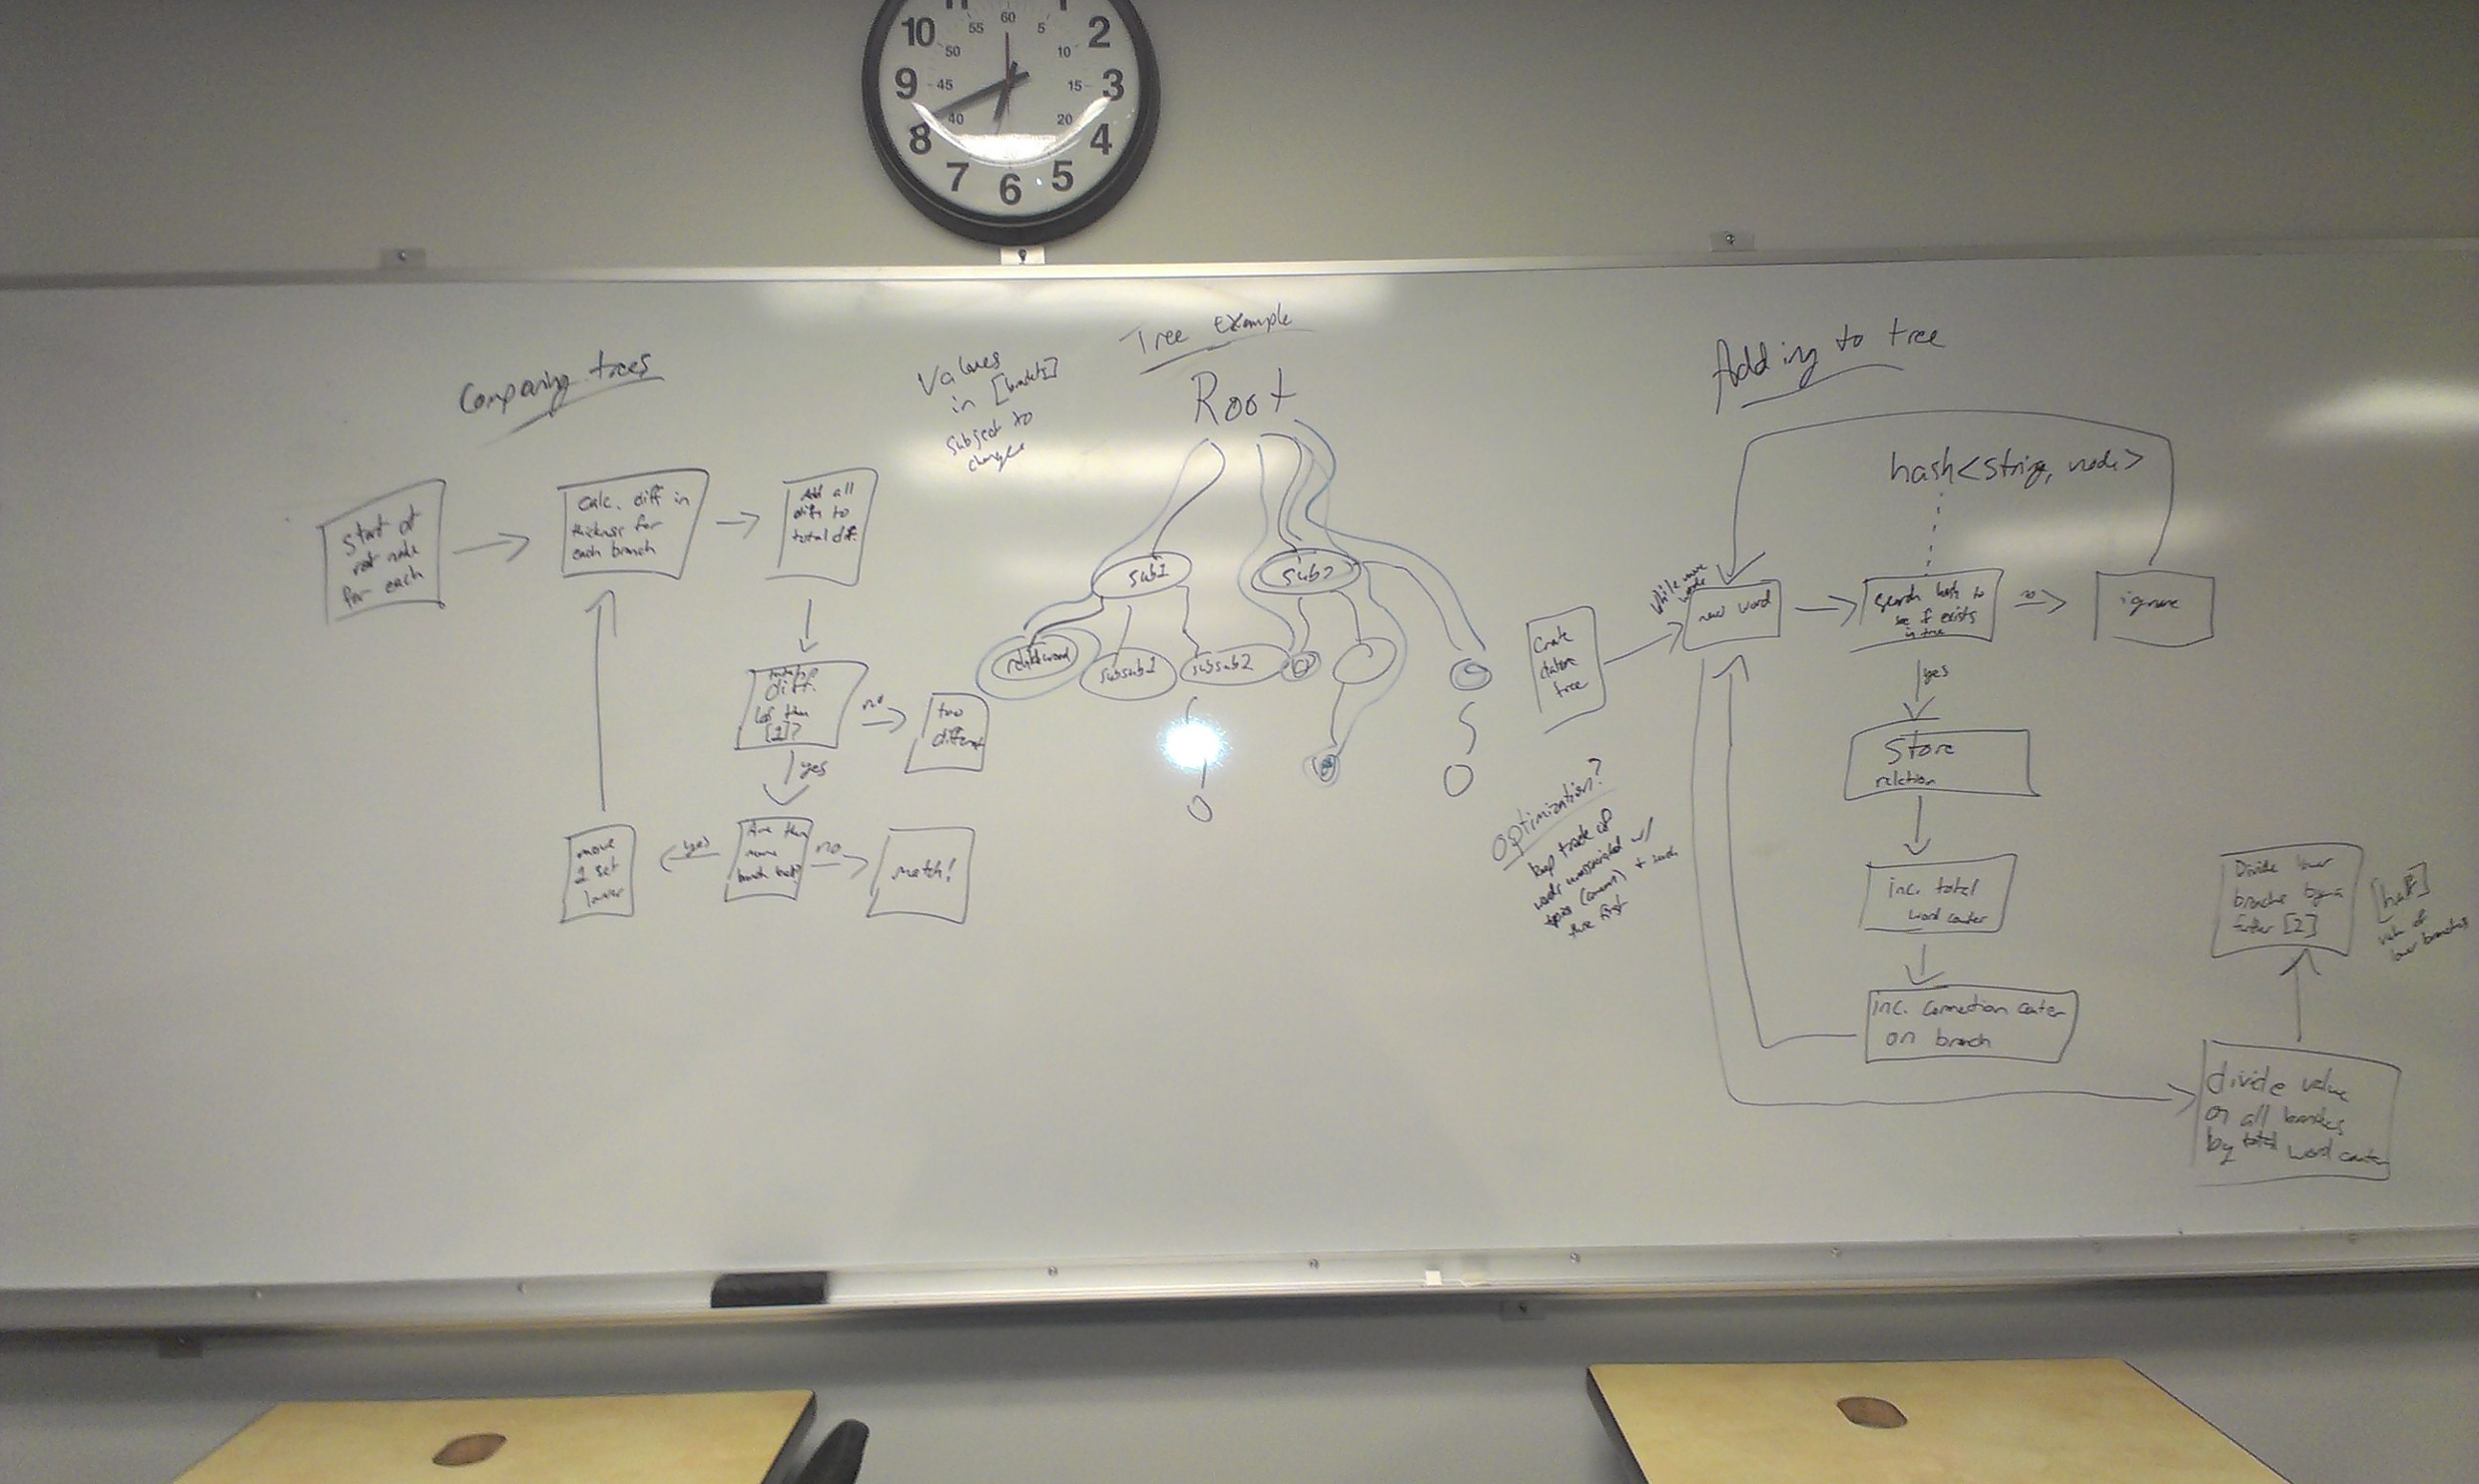 10
9
8
7
6
5
4
3
2
60
5
10
15
20
40
45
50
55
Comparing trees
Start at
root node
for each
calc. diff in
thickness for
each branch
Add all
diffs to
total dif.
diff.
less than
[1]?
no
too
different
yes
Are there
more
no
match!
yes
move
1 set
lower
Values
in [brackets]
subject to
change
Tree Example
Root
sub1
sub2
related word
subsub1
subsub2
Adding to tree
hash<string, node>
Create
tree
while more
words
new word
search hash to
see if exists
in tree
no
ignore
yes
Store
relation
inc. total
word counter
inc. connection counter
on branch
divide value
on all branches
by total word counter
Divide lower
branches by a
factor [2]
[half]
value of
lower branches
Optimization?
keep track of
words unassociated w/
+ search
tree first